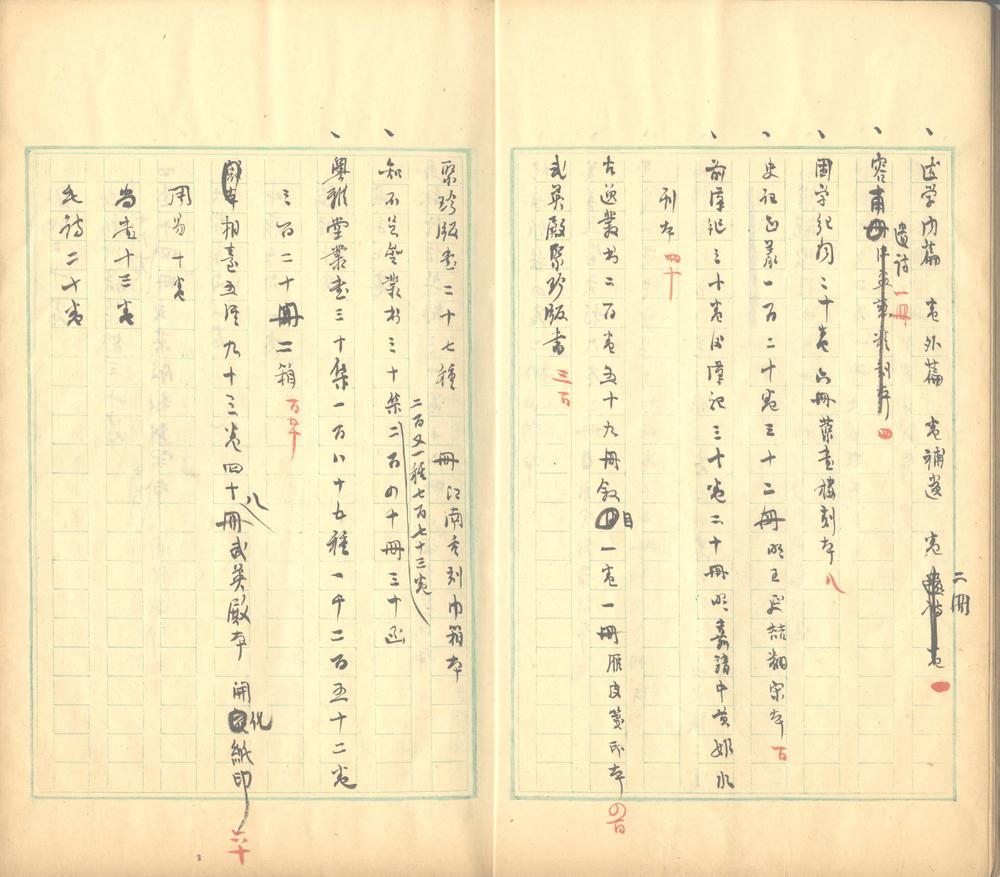 述学内篇 卷外篇 卷補遺 卷 二冊
容甫 遺詩 一冊 四
困学紀聞二十卷六冊叢書樓刻本 八
史記正義一百二十卷三十二冊明王延喆翻宋本 百
前漢紀三十卷後漢紀三十卷二十冊明嘉靖中黄姬水
刊本 四十
古逸叢书二百卷五十九冊敘目一卷一冊雁皮箋印本 四百
武英殿聚珍版書 三百
聚珍版書二十七種 冊江南重刻巾箱本
知不足齋叢书三十集二百四十冊三十函
二百又一種七百七十三卷
粤雅堂叢書三十集一百八十五種一千二百五十二卷
三百二十冊二箱 百五十
相臺五經九十三卷四十八冊武英殿本 開化紙印 六十
周易十卷
尚書十三卷
毛詩二十卷